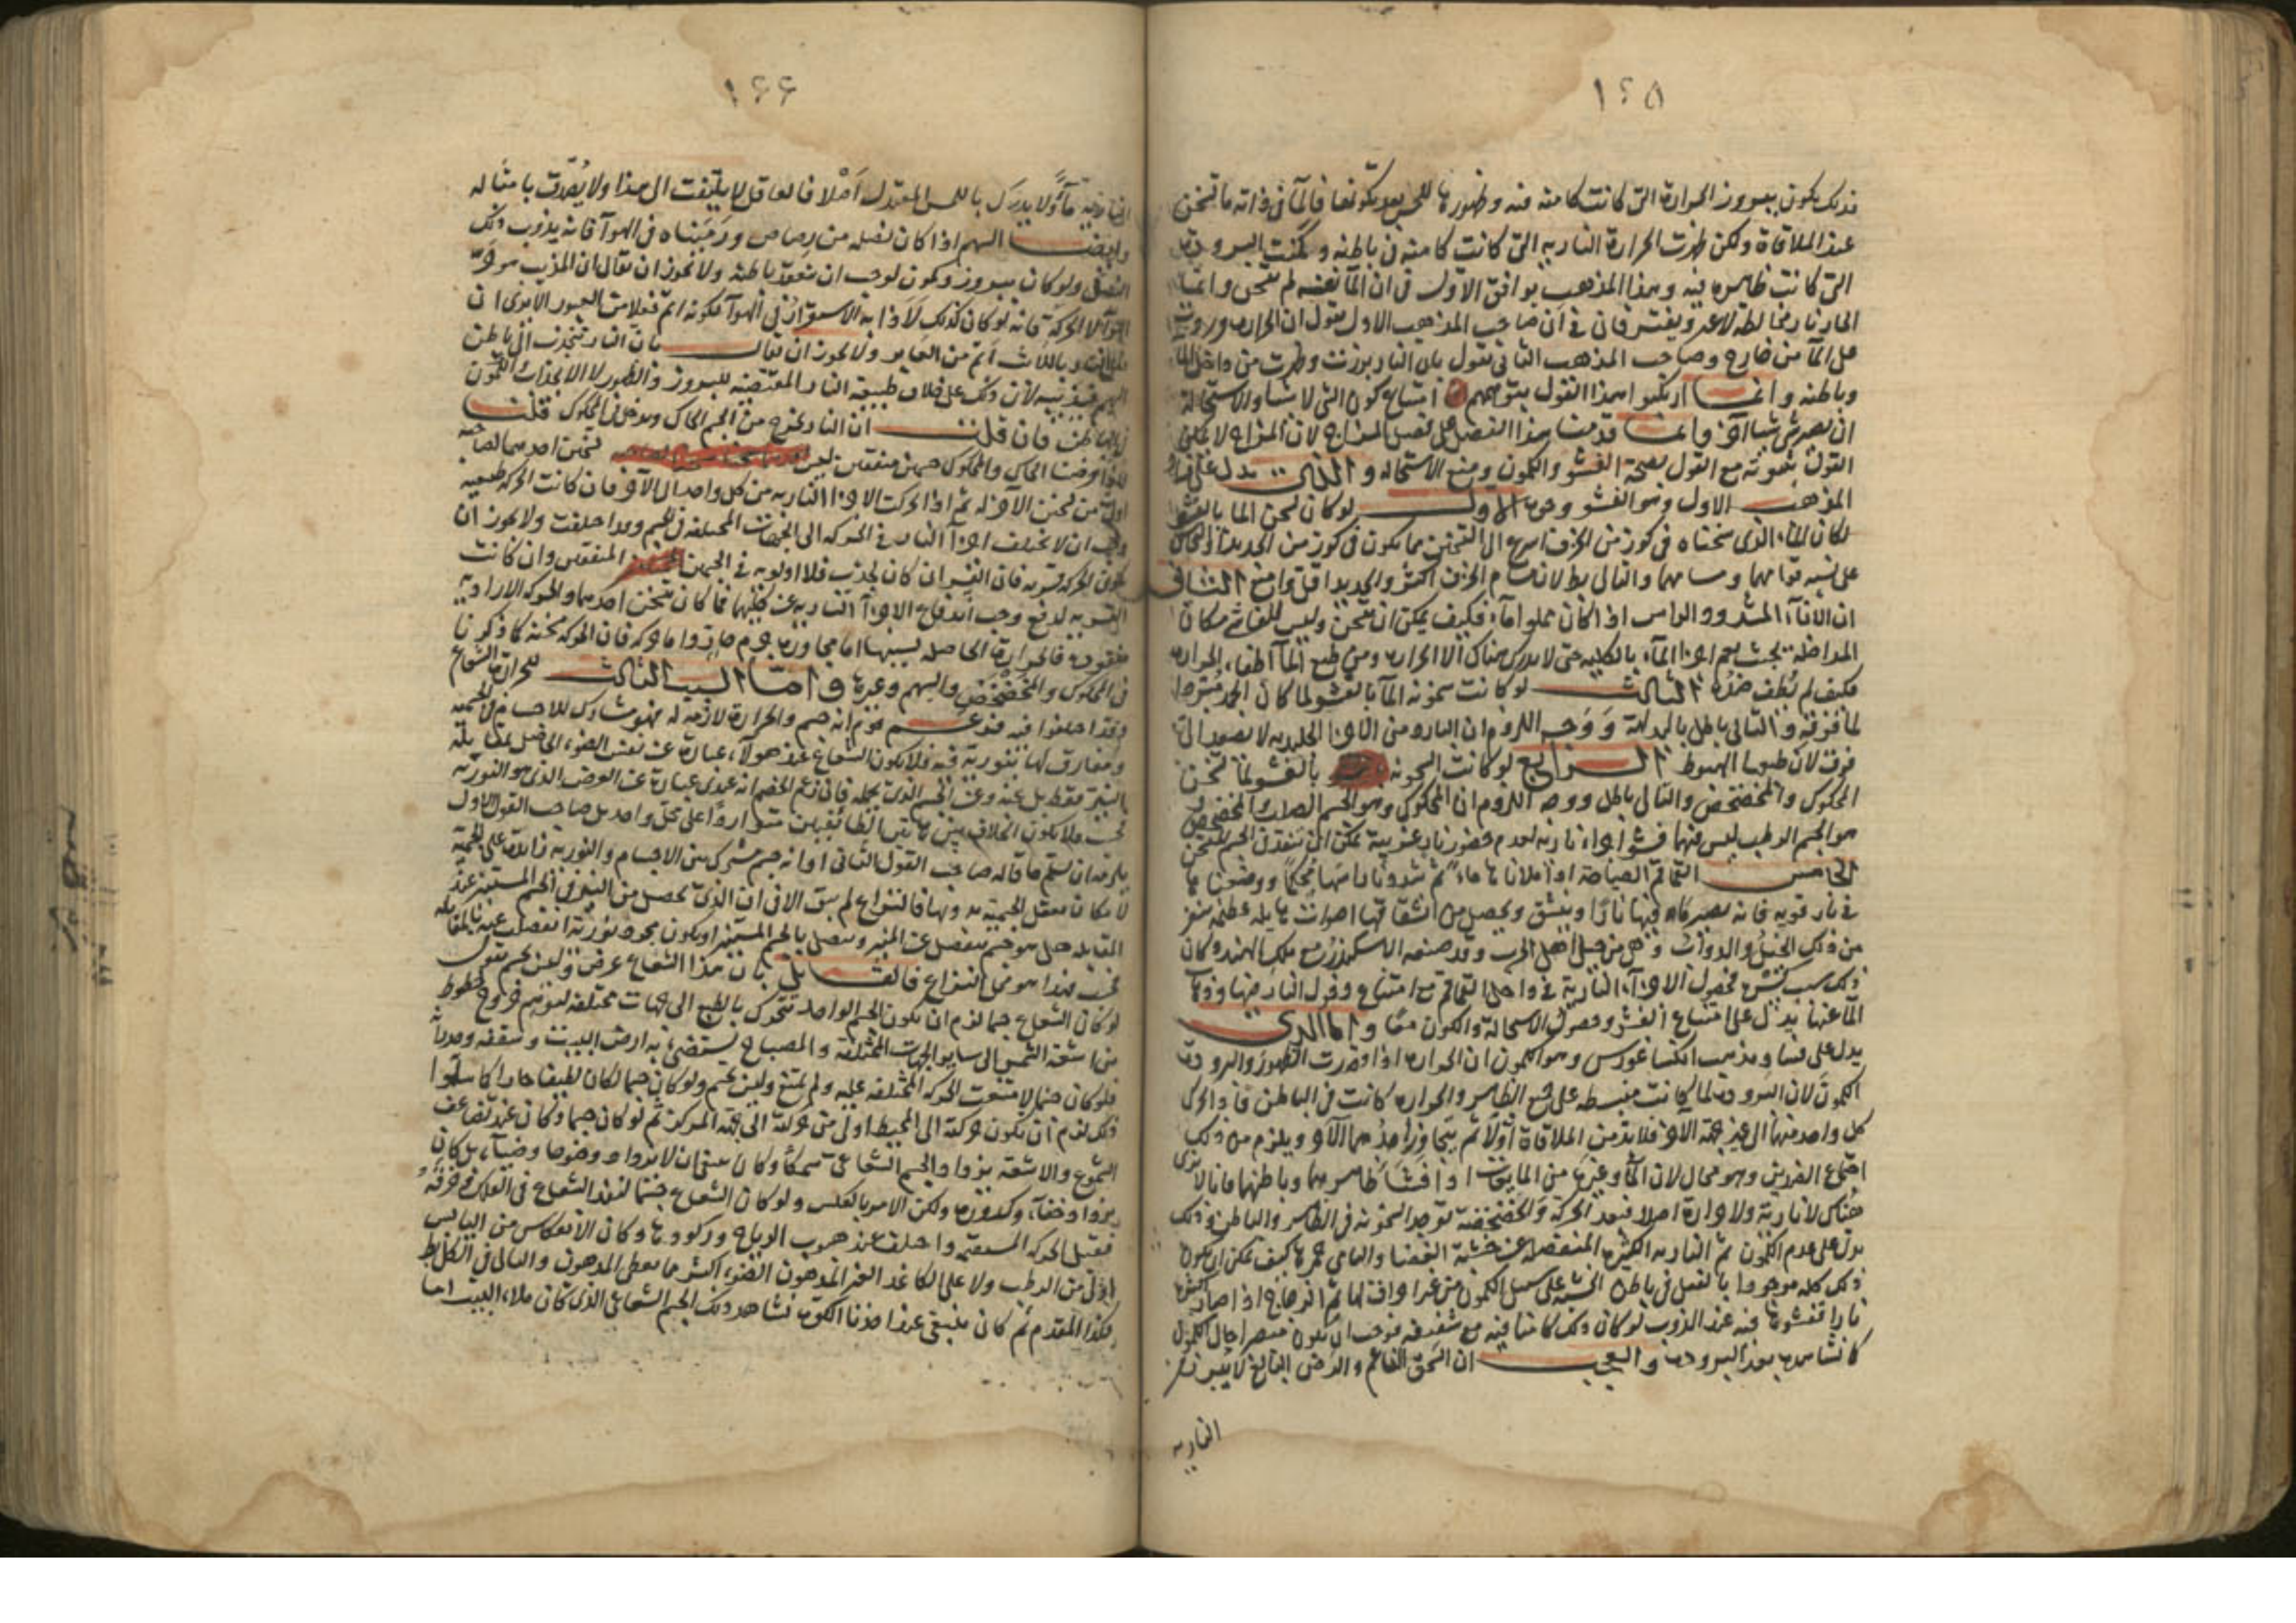 ١٤٥
فذلك يكون ببروز الحرارة التى كانت كامنة فيه وظهورها للحس بعد كونها فالمآ فى ذاته ما تسخن
عند الملاقاة ولكن ظهرت الحرارة النارية التى كانت كامنة فى باطنه وكمنت البرودة
التى كانت ظاهرة فيه وهذا المذهب يوافق الاول فى ان المآ نفسه لم يتسخن وانما
الحار نار مخالطة لاغير ويفترقان فى ان صاحب المذهب الاول يقول ان الحرارة وردت
على المآ من خارج وصاحب المذهب الثانى يقول بان النار برزت وظهرت من داخل المآ
وباطنه وانما ارتكبوا هذا القول لتوهمهم امتناع كون الشى لا شيا والاستحالة
ان يصير شى شيا آخر وانما قدمت هذا الفصل على فصل المزاج لان المزاج لا يمكن
القول بثبوته مع القول بصحة الفشو والكمون ومنع الاستحالة والذى يدل على فساد
المذهب الاول وهو الفشو وجوه الاول لو كان تسخن المآ بالفشو
لكان المآء الذى سخناه فى كوز من الخزف اسرع الى التسخن مما يكون فى كوز من الحديد او النحاس
على نسبة قوامهما ومسامهما والتالى بط لان مسام الخزف اكثر والحديد اقل وامنع الثانى
ان الانآء المسدود الراس اذا كان مملوا مآء فكيف يمكن ان يتسخن وليس للفاشى مكان
المداخلة بحيث يعم اجزا المآء بالكلية حتى لا يدرك هناك الا الحرارة ومن طبع المآ اطفاء الحرارة
فكيف لم يطف هذه الثالث لو كانت سخونة المآ بالفشو لما كان الجمد مبردا
لما فوقه والتالى باطل بالبديهة ووجه اللزوم ان البارد من الاجزا الجليدية لا يصعد الى
فوق لان طبعها الهبوط الرابع لو كانت السخونة بالفشو لما تسخن
المحكوك والمخضخض والتالى باطل ووجه اللزوم ان المحكوك وهو الجسم الصلب والمخضخض
هو الجسم الرطب ليس فيهما فشو اجزاء نارية لعدم حضور نار غريبة يمكن ان تنفذ فى الجسم المتسخن
الخامس القماقم الصياحة اذا ملأناها ماء ثم شددنا راسها محكما ووضعناها
فى نار قوية فانه يصير ماؤه فيها نارا وينشق ويحصل من انشقاقها اصوات هايلة عظيمة
من ذلك الخيل والدواب وهى من حيل اهل الحرب وقد صنعه الاسكندر مع ملك الهند وكان
ذلك سبب كسره فحصول الاجزآء النارية فى داخل القماقم مع امتناع دخول النار فيها وذهاب
المآ عنها يدل على امتناع الفشو وحصول الاستحالة والكون معا واما الذى
يدل على فساد مذهب انكساغورس وهو الكمون ان الحرارة اذا اخذت الظهور والبرودة
الكمون لان البرودة لما كانت منبسطة على سطح الظاهر والحرارة كانت فى الباطن فاذا تحرك
كل واحد منهما الى غير جهة الآخر فلا بد من الملاقاة اولا ثم يتجاوز احدهما الآخر ويلزم من ذلك
اجتماع الضدين وهو محال لان المآ وغيره من المايعات اذا فتشنا ظاهرهما وباطنهما فانا لا نرى
هناك لا نارية ولا حرارة اصلا فبعد الحركة والخضخضة توجد السخونة فى الظاهر والباطن وذلك
يدل على عدم الكمون ثم النارية الكثيرة المنفصلة عن خشبة الغضا والباقى جمرها كيف يمكن ان يكون
ذلك كله موجودا بالفعل فى باطن الخشبة على سبيل الكمون من غير احراقها ثم الزجاج اذا صار
نارا تفشوها فيه عند الذوب لو كان ذلك كامنا فيه مع شفيفه لوجب ان يكون مبصرا حال الكمون
كما نشاهده بعد البرودة والعجب ان السحق الناعم والرض البالغ لا يبرز
النارية
١٤٦
النارية مآ ولا يدرك باللمس المعتدل اصلا فالعاقل لا يلتفت الى هذا ولا يصدق بامثاله
وايضا السهم اذا كان نصله من رصاص ورميناه فى الهوآ فانه يذوب ذلك
النصل ولو كان ببروز وكمون لوجب ان ينعقد باطنه ولا يجوز ان يقال ان المذيب هو حر
الهوآ لا الحركة فانه لو كان كذلك لاذابه الاستقرار فى الهوآ لكونه اتم فعلا من العبور الا يرى ان
باللابث اتم من العابر ولا يجوز ان يقال بان النار تنجذب الى باطن
السهم فتذيبه لان ذلك على خلاف طبيعة النار المقتضية للبروز والظهور لا الانجذاب والكمون
فان قلت ان النار تخرج من الجسم الحاك وتدخل فى المحكوك قلت
اذا فرضنا الحاك والمحكوك جسمين متفقين ليس تسخن احدهما لصاحبه
اولى من تسخن الآخر له ثم اذا تحركت الاجزا النارية من كل واحد الى الآخر فان كانت الحركة طبيعية
وجب ان لا تختلف اجزآ النار فى الحركة الى الجهات المختلفة وقد اختلفت ولا يجوز ان
تكون الحركة قسرية فان القسر ان كان لجذب فلا اولوية فى الجسمين المتفقين وان كانت
القسرية لدفع وجب اندفاع الاجزآ النارية عن كليهما فما كان يتسخن احدهما والحركة الارادية
مفقودة فالحرارة الحاصلة بسببها اما مجاورة جرم حار واما حركة فان الحركة مسخنة كما ذكرنا
فى المحكوك والمخضخض والسهم وغيره واما السبب الثالث للحرارة الشعاع
وقد اختلفوا فيه فزعم قوم انه جسم والحرارة لازمة له فهو مشارك للاجسام فى الجسمية
ومفارق لها بنورية فيه فلا يكون الشعاع عند هولآء عبارة عن نفس الضوء الحاصل بمقابلة
النير فقط بل عنه وعن الجسم الذى يحمله فان زعم الخصم انه عنى عبارة عن العرض الذى هو النورية
فحسب فلا يكون الخلاف بين هاتين الطائفتين متواردا على محل واحد بل صاحب القول الاول
يلزمه ان يسلم ما قاله صاحب القول الثانى اذ انه جسم مشترك بين الاجسام والنورية زائدة على الجسمية
لامكان تعقل الجسمية بدونها فالنزاع لم يبق الا فى ان الذى يحصل من النير فى الجسم المستنير عند
المقابلة هل هو جسم ينفصل عن المنير ويتصل بالجسم المستنير او يكون مجرد نورية انفصلت عنه بالمقابلة
فحسب فهذا هو محل النزاع فالقائل بان هذا الشعاع عرض وليس بجسم يقول
لو كان الشعاع جسما لزم ان يكون الجسم الواحد يتحرك بالطبع الى جهات مختلفة لعدم خروج خطوط
من اشعة الشمس الى ساير الجهات المختلفة والمصباح يستضئ به ارض البيت وسقفه وجدرانه
فلو كان جسما لامتنعت الحركة المختلفة عليه ولم تمتنع وليس بجسم ولو كان جسما لكان لطيفا حارا كما سلموا
ذلك لزم ان يكون حركته الى المحيط اولى من حركته الى جهة المركز ثم لو كان جسما وكان عند تضاعف
الشموع والاشعة يزداد الجسم الشعاعى سمكا وكان ينبغى ان لا يزداد وضوحا وضيآء بل كان
يزداد خفآء وكدورة ولكن الامر بالعكس ولو كان الشعاع جسما لنفذ الشعاع فى الفلك فخرقه
فقبل الحركة المستقيمة واختلف عند هبوب الرياح وركودها وكان الانعكاس من اليابس
اولى من الرطب ولا على الكاغد الغير المدهون الضوء اكثر مما يعطى المدهون والتالى فى الكل بط
فكذا المقدم ثم كان ينبغى عند اخذنا الكوة نشاهد ذلك الجسم الشعاعى الذى كان ملاء البيت اما